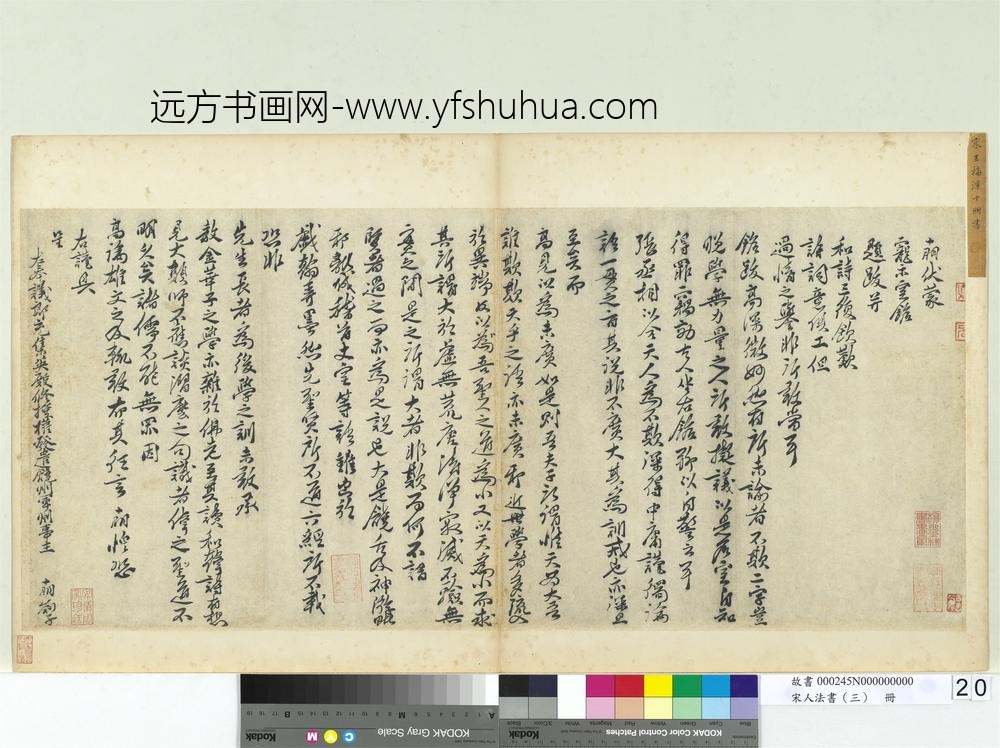 远方书画网-www.yfshuhua.com
宋王梅溪十朋書
十朋伏蒙
寵示室銘
題跋并
和詩三復欽歎
詩詞意俱工但
過情之譽非所敢當耳
銘跋高深微妙然有所未諭者不欺二字豈
晚學無力量之人所敢擬議以是名室自知
得罪竊效古人坐右銘聊以自警云耳
張丞相以今天人為不欺深得中庸謹獨論
語一貫之旨其說非不廣大其為訓戒也亦深且
至矣而
高見以為未廣如是則吾夫子所謂惟天為大吾
誰欺欺天乎之語亦未廣邪近世學者多陷
於異端故以為吾聖人之道為小又以天為小而求
其所謂大於虛無荒唐清淨寂滅不無
實之閒是之所謂大者非欺而何不謂
賢者過之而亦為是說也大是饒舌及神遊
邪教稽首丈室等語雖出於
戲翰弄墨然先聖賢所不道六經所不載
恐非
先生長者為後學之訓未敢承
教金華子之學亦雜於佛老至其讀和詩有愁
見大顛師不應談之句識者偉之聖道不
明久矣諸儒不能無罪因
高論雄文之及輒敢布其狂言 十朋惶恐
右謹具
呈
左奉議郎充集英殿修撰權發遣饒州軍州事王 十朋 劄子
故書 000245N000000000
宋人法書（三） 冊
20
KODAK Gray Scale
Kodak
C
Y
M
A
B
KODAK Color Control Patches
Kodak
Blue
Cyan
Green
Yellow
Red
Magenta
White
3/Color
Black